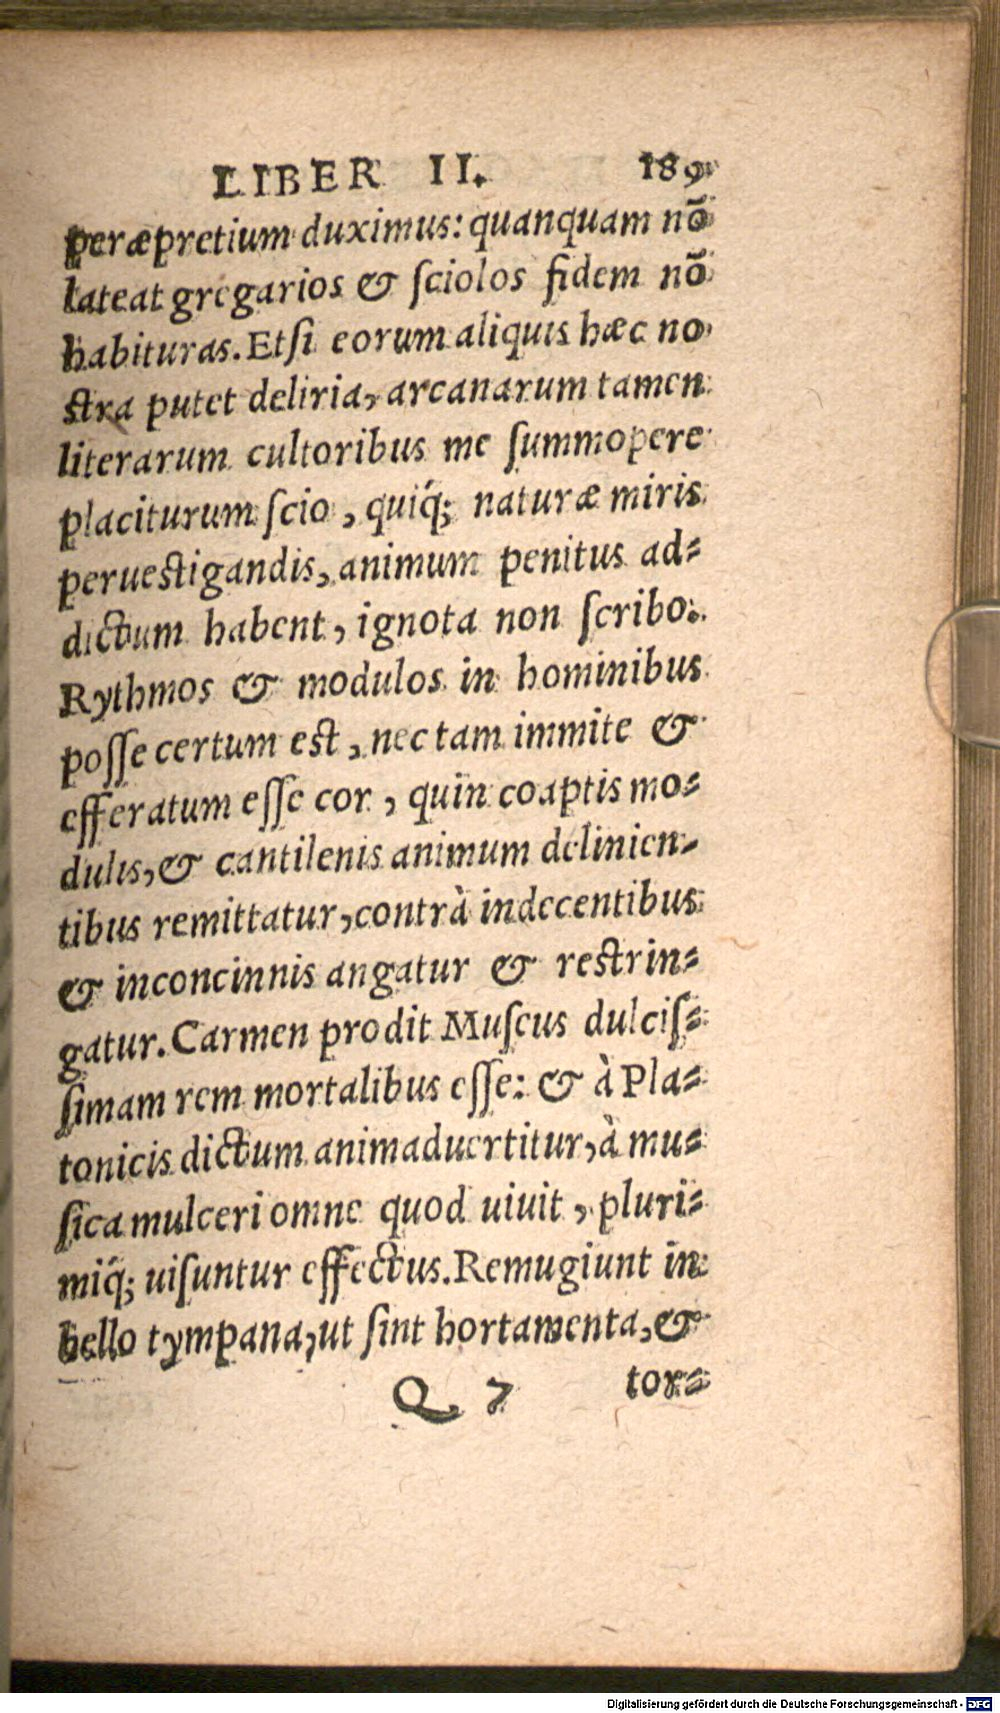 LIBER II. 189
peræpretium duximus: quanquam nō
lateat gregarios & ſciolos fidem nō
habituras. Etſi eorum aliquis hæc no
ſtra putet deliria, arcanarum tamen
literarum cultoribus me ſummopere
placiturum ſcio, quiq́; naturæ miris
perueſtigandis, animum penitus ad-
dictum habent, ignota non ſcribo.
Rythmos & modulos in hominibus
poſſe certum eſt, nec tam immite &
efferatum eſſe cor, quin coaptis mo-
dulis, & cantilenis animum delinien-
tibus remittatur, contrà indecentibus
& inconcinnis angatur & reſtrin-
gatur. Carmen prodit Muſcus dulciſ-
ſimam rem mortalibus eſſe: & à Pla-
tonicis dictum animaduertitur, à mu-
ſica mulceri omne quod uiuit, pluri-
miq́; uiſuntur effectus. Remugiunt in
bello tympana, ut ſint hortamenta, &
Q 7 tor-
Digitalisierung gefördert durch die Deutsche Forschungsgemeinschaft - DFG